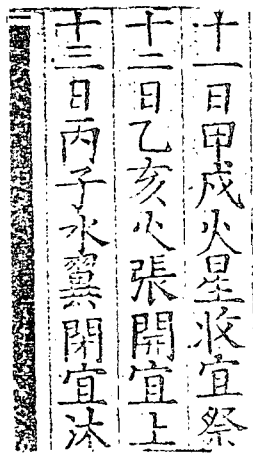 十一日甲戌火星收宜祭
十二日乙亥火張開宜上
十三日丙子水翼閉宜沐